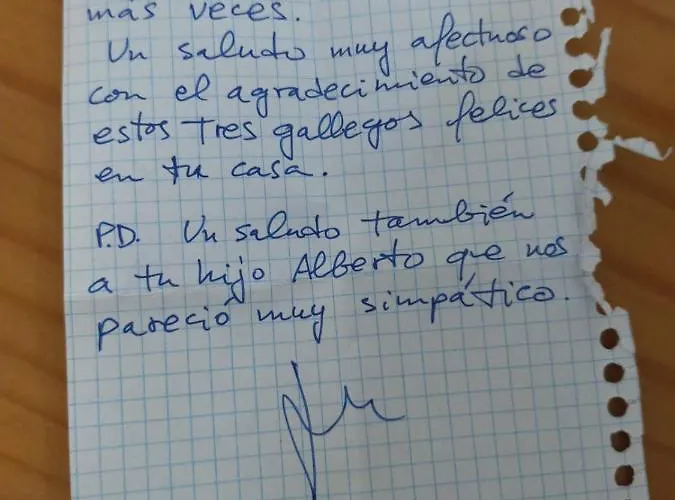 más veces.
Un saludo muy afectuoso
con el agradecimiento de
estos tres gallegos felices
en tu casa.
P.D. Un saludo también
a tu hijo Alberto que nos
pareció muy simpático.